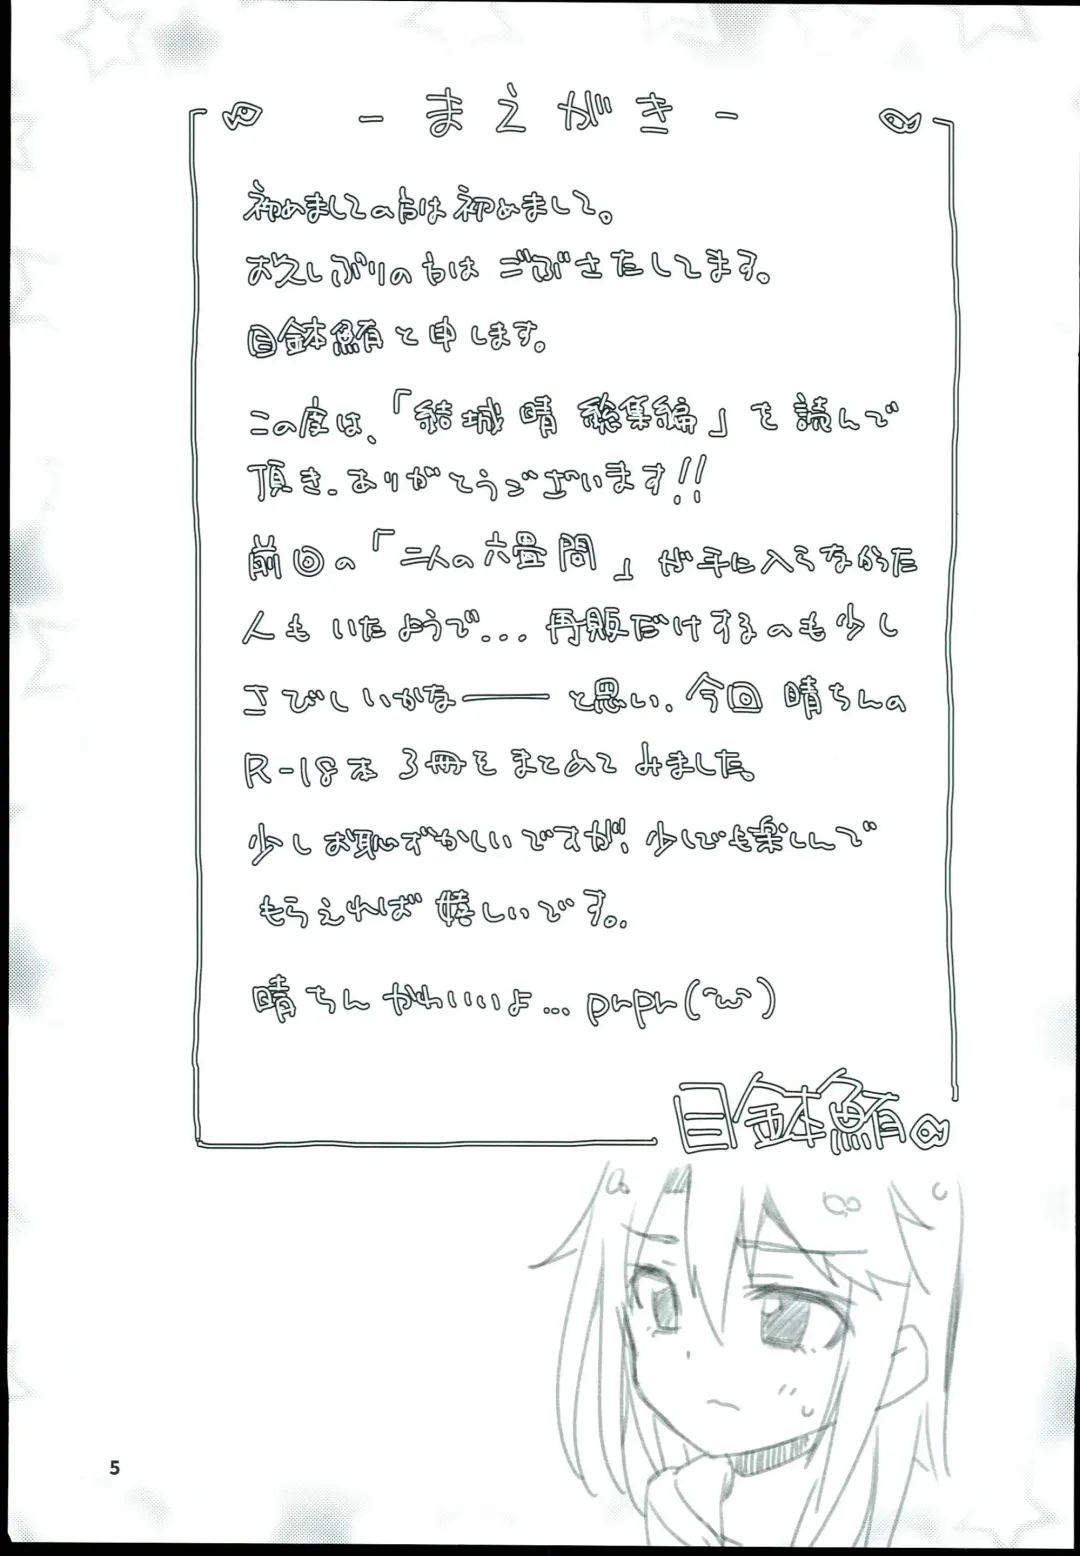 - まえがき -
初めましての方は初めまして。
お久しぶりの方はごぶさたしてます。
目鉢鮪と申します。
この度は、「結城 晴 総集編」を読んで
頂き、ありがとうございます!!
前回の「二人の六畳間」が手に入らなかった
人もいたようで... 再販だけするのも少し
さびしいかな―― と思い、今回 晴ちんの
R-18本 3冊をまとめてみました。
少しお恥ずかしいですが、少しでも楽しんで
もらえれば嬉しいです。
晴ちん かわいいよ... prpr(^ω^)
目鉢鮪
5